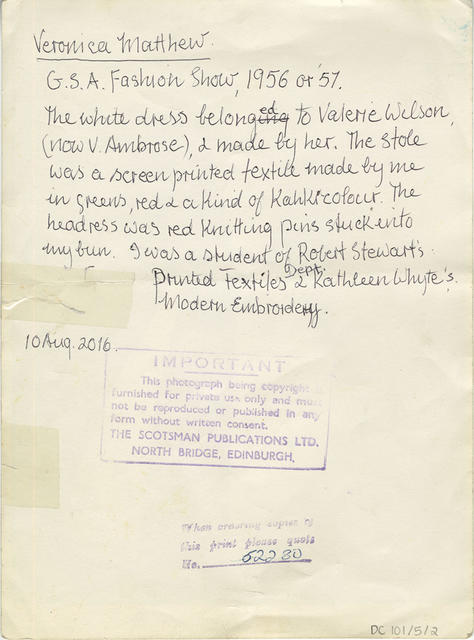 Veronica Matthew.
G.S.A. Fashion Show, 1956 or '57.
The white dress belonged to Valerie Wilson,
(now V. Ambrose), & made by her. The stole
was a screen printed textile made by me
in greens, red & a kind of Kahki colour. The
headress was red knitting pins stuck into
my bun. I was a student of Robert Stewart's
Printed Textiles Dept. & Kathleen Whyte's
Modern Embroidery.
10 Aug. 2016.
IMPORTANT
This photograph being copyright is
furnished for private use only and must
not be reproduced or published in any
form without written consent.
THE SCOTSMAN PUBLICATIONS LTD.
NORTH BRIDGE, EDINBURGH.
When ordering copies of
this print please quote
No. 52230
DC 101/5/2